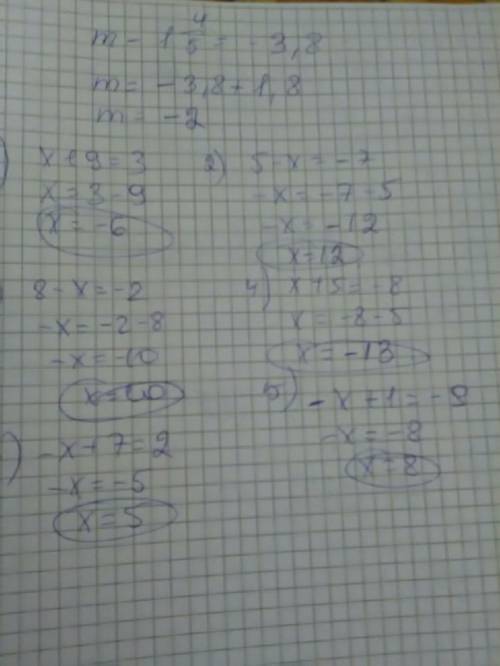 m - 1 4/5 = -3,8
m = -3,8 + 1,8
m = -2
x + 9 = 3
x = 3 - 9
x = -6
2) 5 - x = -7
-x = -7 - 5
-x = -12
x = 12
8 - x = -2
-x = -2 - 8
-x = -10
x = 10
4) x + 5 = -8
x = -8 - 5
x = -13
) -x + 7 = 2
-x = -5
x = 5
5) -x + 1 = -9
-x = -8
x = 8